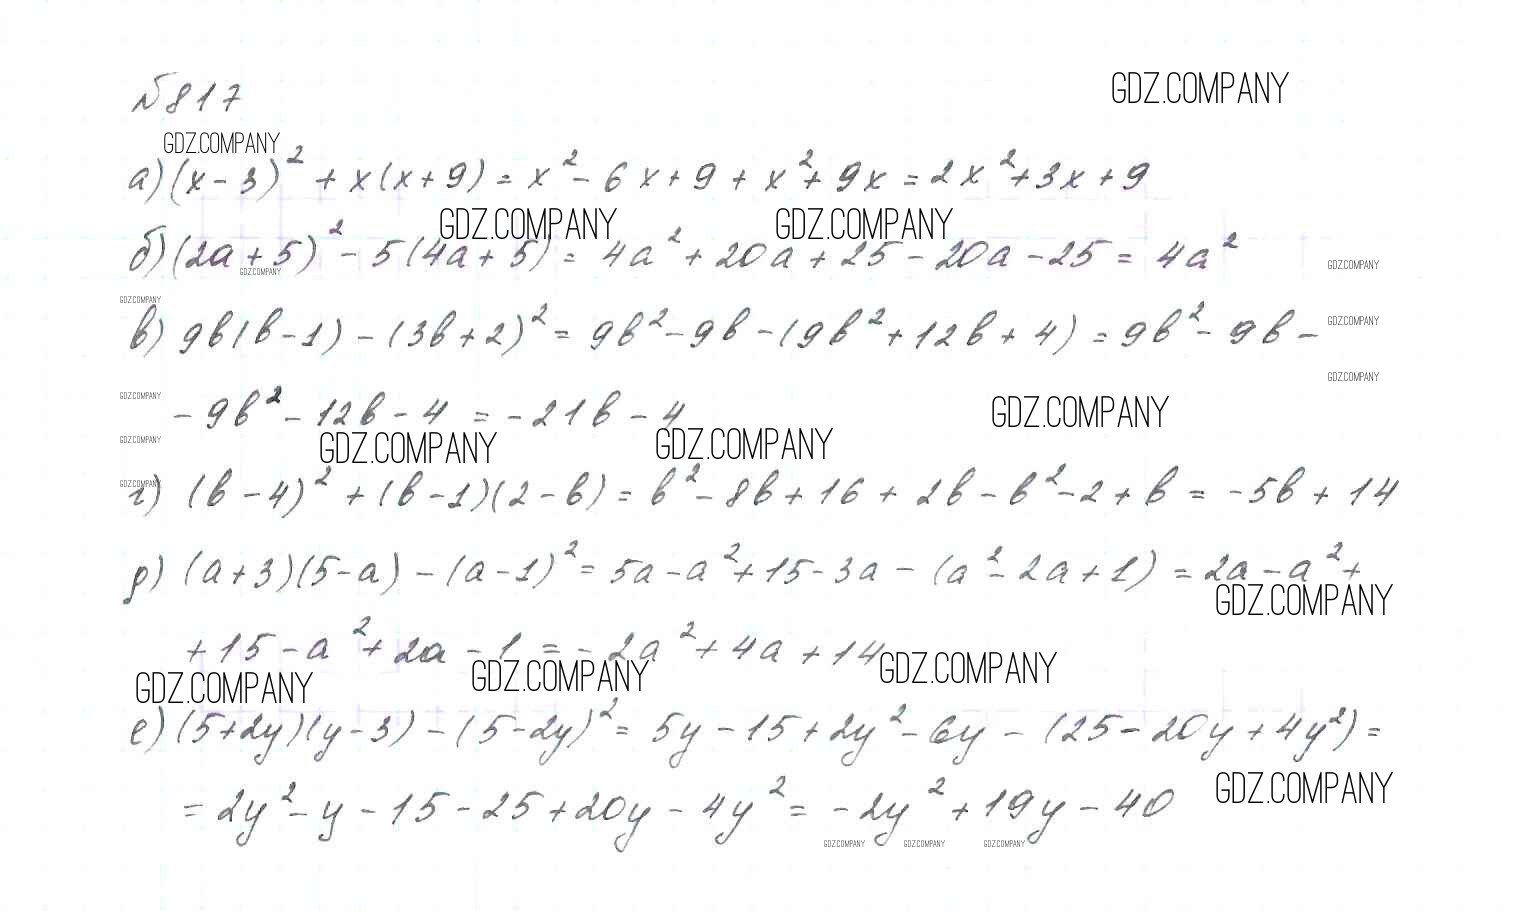 №817
GDZ.COMPANY
GDZ.COMPANY
а) (x-3)² + x(x+9) = x² - 6x + 9 + x² + 9x = 2x² + 3x + 9
GDZ.COMPANY GDZ.COMPANY
б) (2a+5)² - 5(4a+5) = 4a² + 20a + 25 - 20a - 25 = 4a²
GDZ.COMPANY GDZ.COMPANY
GDZ.COMPANY
в) 9b(b-1) - (3b+2)² = 9b² - 9b - (9b² + 12b + 4) = 9b² - 9b -
GDZ.COMPANY
GDZ.COMPANY
GDZ.COMPANY
- 9b² - 12b - 4 = -21b - 4
GDZ.COMPANY
GDZ.COMPANY GDZ.COMPANY GDZ.COMPANY
GDZ.COMPANY
г) (b-4)² + (b-1)(2-b) = b² - 8b + 16 + 2b - b² - 2 + b = -5b + 14
д) (a+3)(5-a) - (a-1)² = 5a - a² + 15 - 3a - (a² - 2a + 1) = 2a - a² +
GDZ.COMPANY
+ 15 - a² + 2a - 1 = -2a² + 4a + 14
GDZ.COMPANY GDZ.COMPANY GDZ.COMPANY
е) (5+2y)(y-3) - (5-2y)² = 5y - 15 + 2y² - 6y - (25 - 20y + 4y²) =
= 2y² - y - 15 - 25 + 20y - 4y² = -2y² + 19y - 40
GDZ.COMPANY
GDZ.COMPANY GDZ.COMPANY GDZ.COMPANY